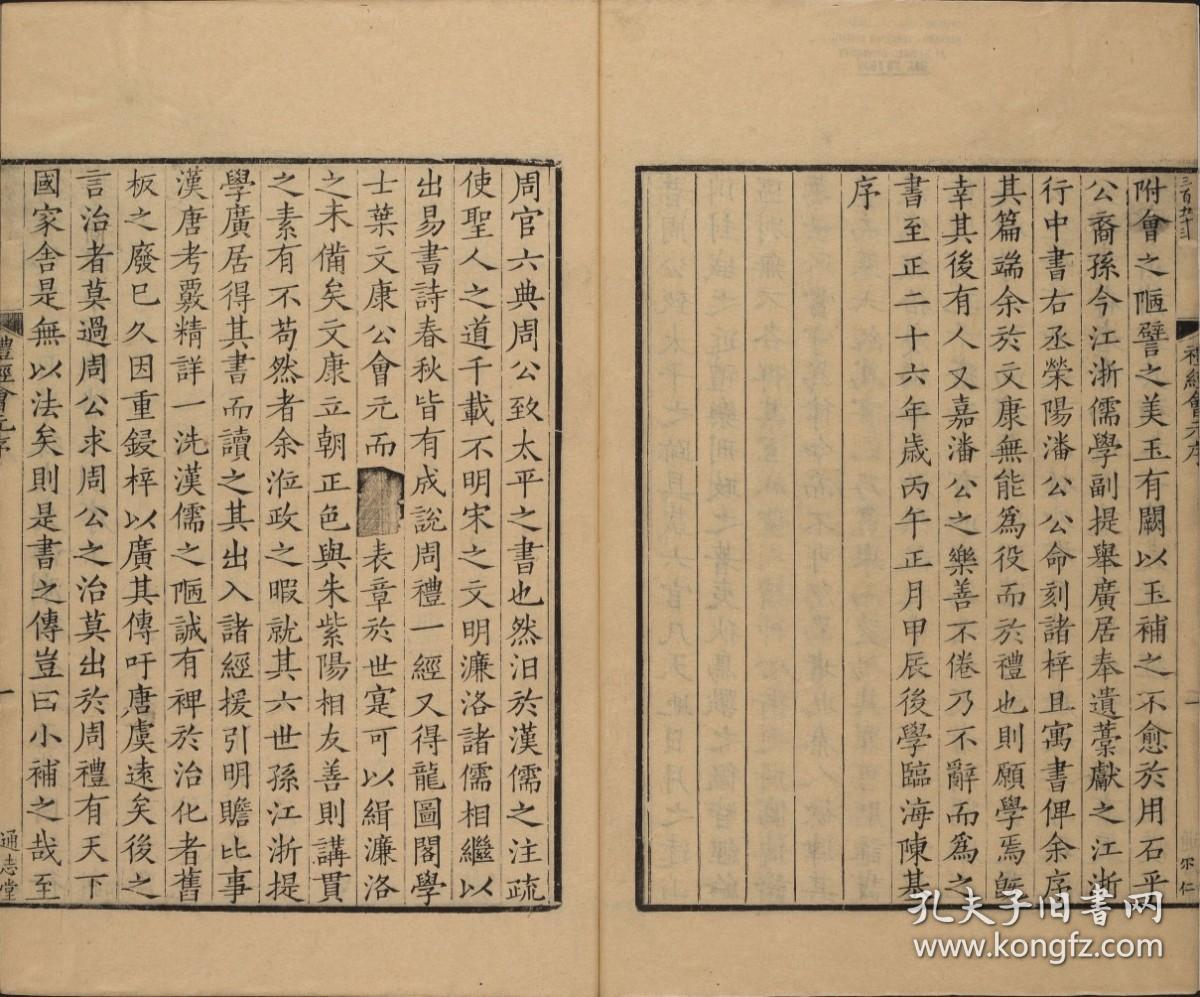 三百九十三
附會之陋譬之美玉有闕以玉補之不愈於用石乎
公裔孫今江浙儒學副提舉廣居奉遺藁獻之江浙
行中書右丞榮陽潘公公命刻諸梓且寓書俾余序
其篇端余於文康無能爲役而於禮也則願學焉旣
幸其後有人又嘉潘公之樂善不倦乃不辭而爲之
書至正二十六年歲丙午正月甲辰後學臨海陳基
序
禮經會元序
二
尔仁
周官六典周公致太平之書也然汩於漢儒之注疏
使聖人之道千載不明宋之文明濂洛諸儒相繼以
出易書詩春秋皆有成說周禮一經又得龍圖閣學
士葉文康公會元而
表章於世寔可以緝濂洛
之未備矣文康立朝正色與朱紫陽相友善則講貫
之素有不苟然者余涖政之暇就其六世孫江浙提
學廣居得其書而讀之其出入諸經援引明贍比事
漢唐考覈精詳一洗漢儒之陋誠有裨於治化者舊
板之廢已久因重鋟梓以廣其傳吁唐虞遠矣後之
言治者莫過周公求周公之治莫出於周禮有天下
國家舍是無以法矣則是書之傳豈曰小補之哉至
禮經會元序
一
通志堂
孔夫子旧书网
www.kongfz.com